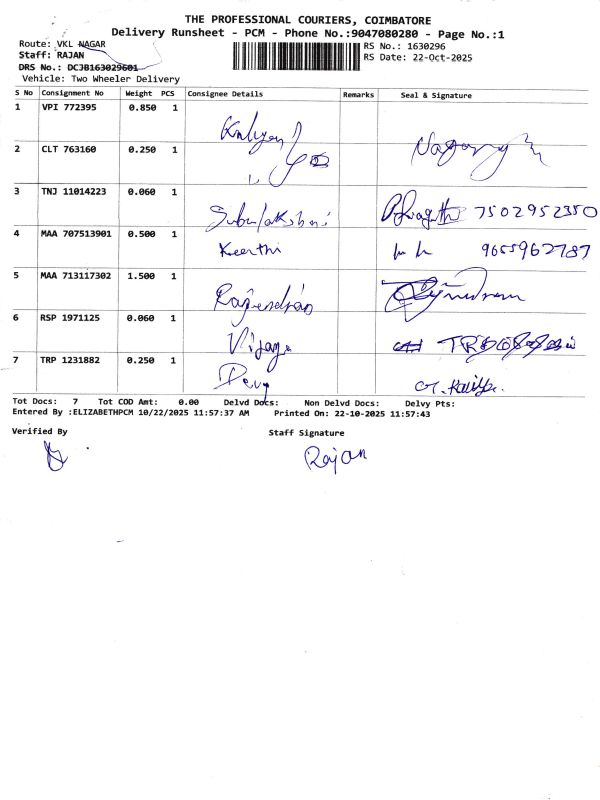 THE PROFESSIONAL COURIERS, COIMBATORE
Delivery Runsheet - PCM - Phone No.:9047080280 - Page No.:1
Route: VKL NAGAR
RS No.: 1630296
Staff: RAJAN
RS Date: 22-Oct-2025
DRS No.: DCJB163029601
Vehicle: Two Wheeler Delivery
S No Consignment No Weight PCS Consignee Details Remarks Seal & Signature
1 VPI 772395 0.850 1
2 CLT 763160 0.250 1
3 TNJ 11014223 0.060 1
Subulakshmi 7502952350
4 MAA 707513901 0.500 1
Keerthi 9655962787
5 MAA 713117302 1.500 1
Rajendran
6 RSP 1971125 0.060 1
Vijaya
7 TRP 1231882 0.250 1
Devi
Tot Docs: 7 Tot COD Amt: 0.00 Delvd Docs: Non Delvd Docs: Delvy Pts:
Entered By :ELIZABETHPCM 10/22/2025 11:57:37 AM Printed On: 22-10-2025 11:57:43
Verified By Staff Signature
Rajan